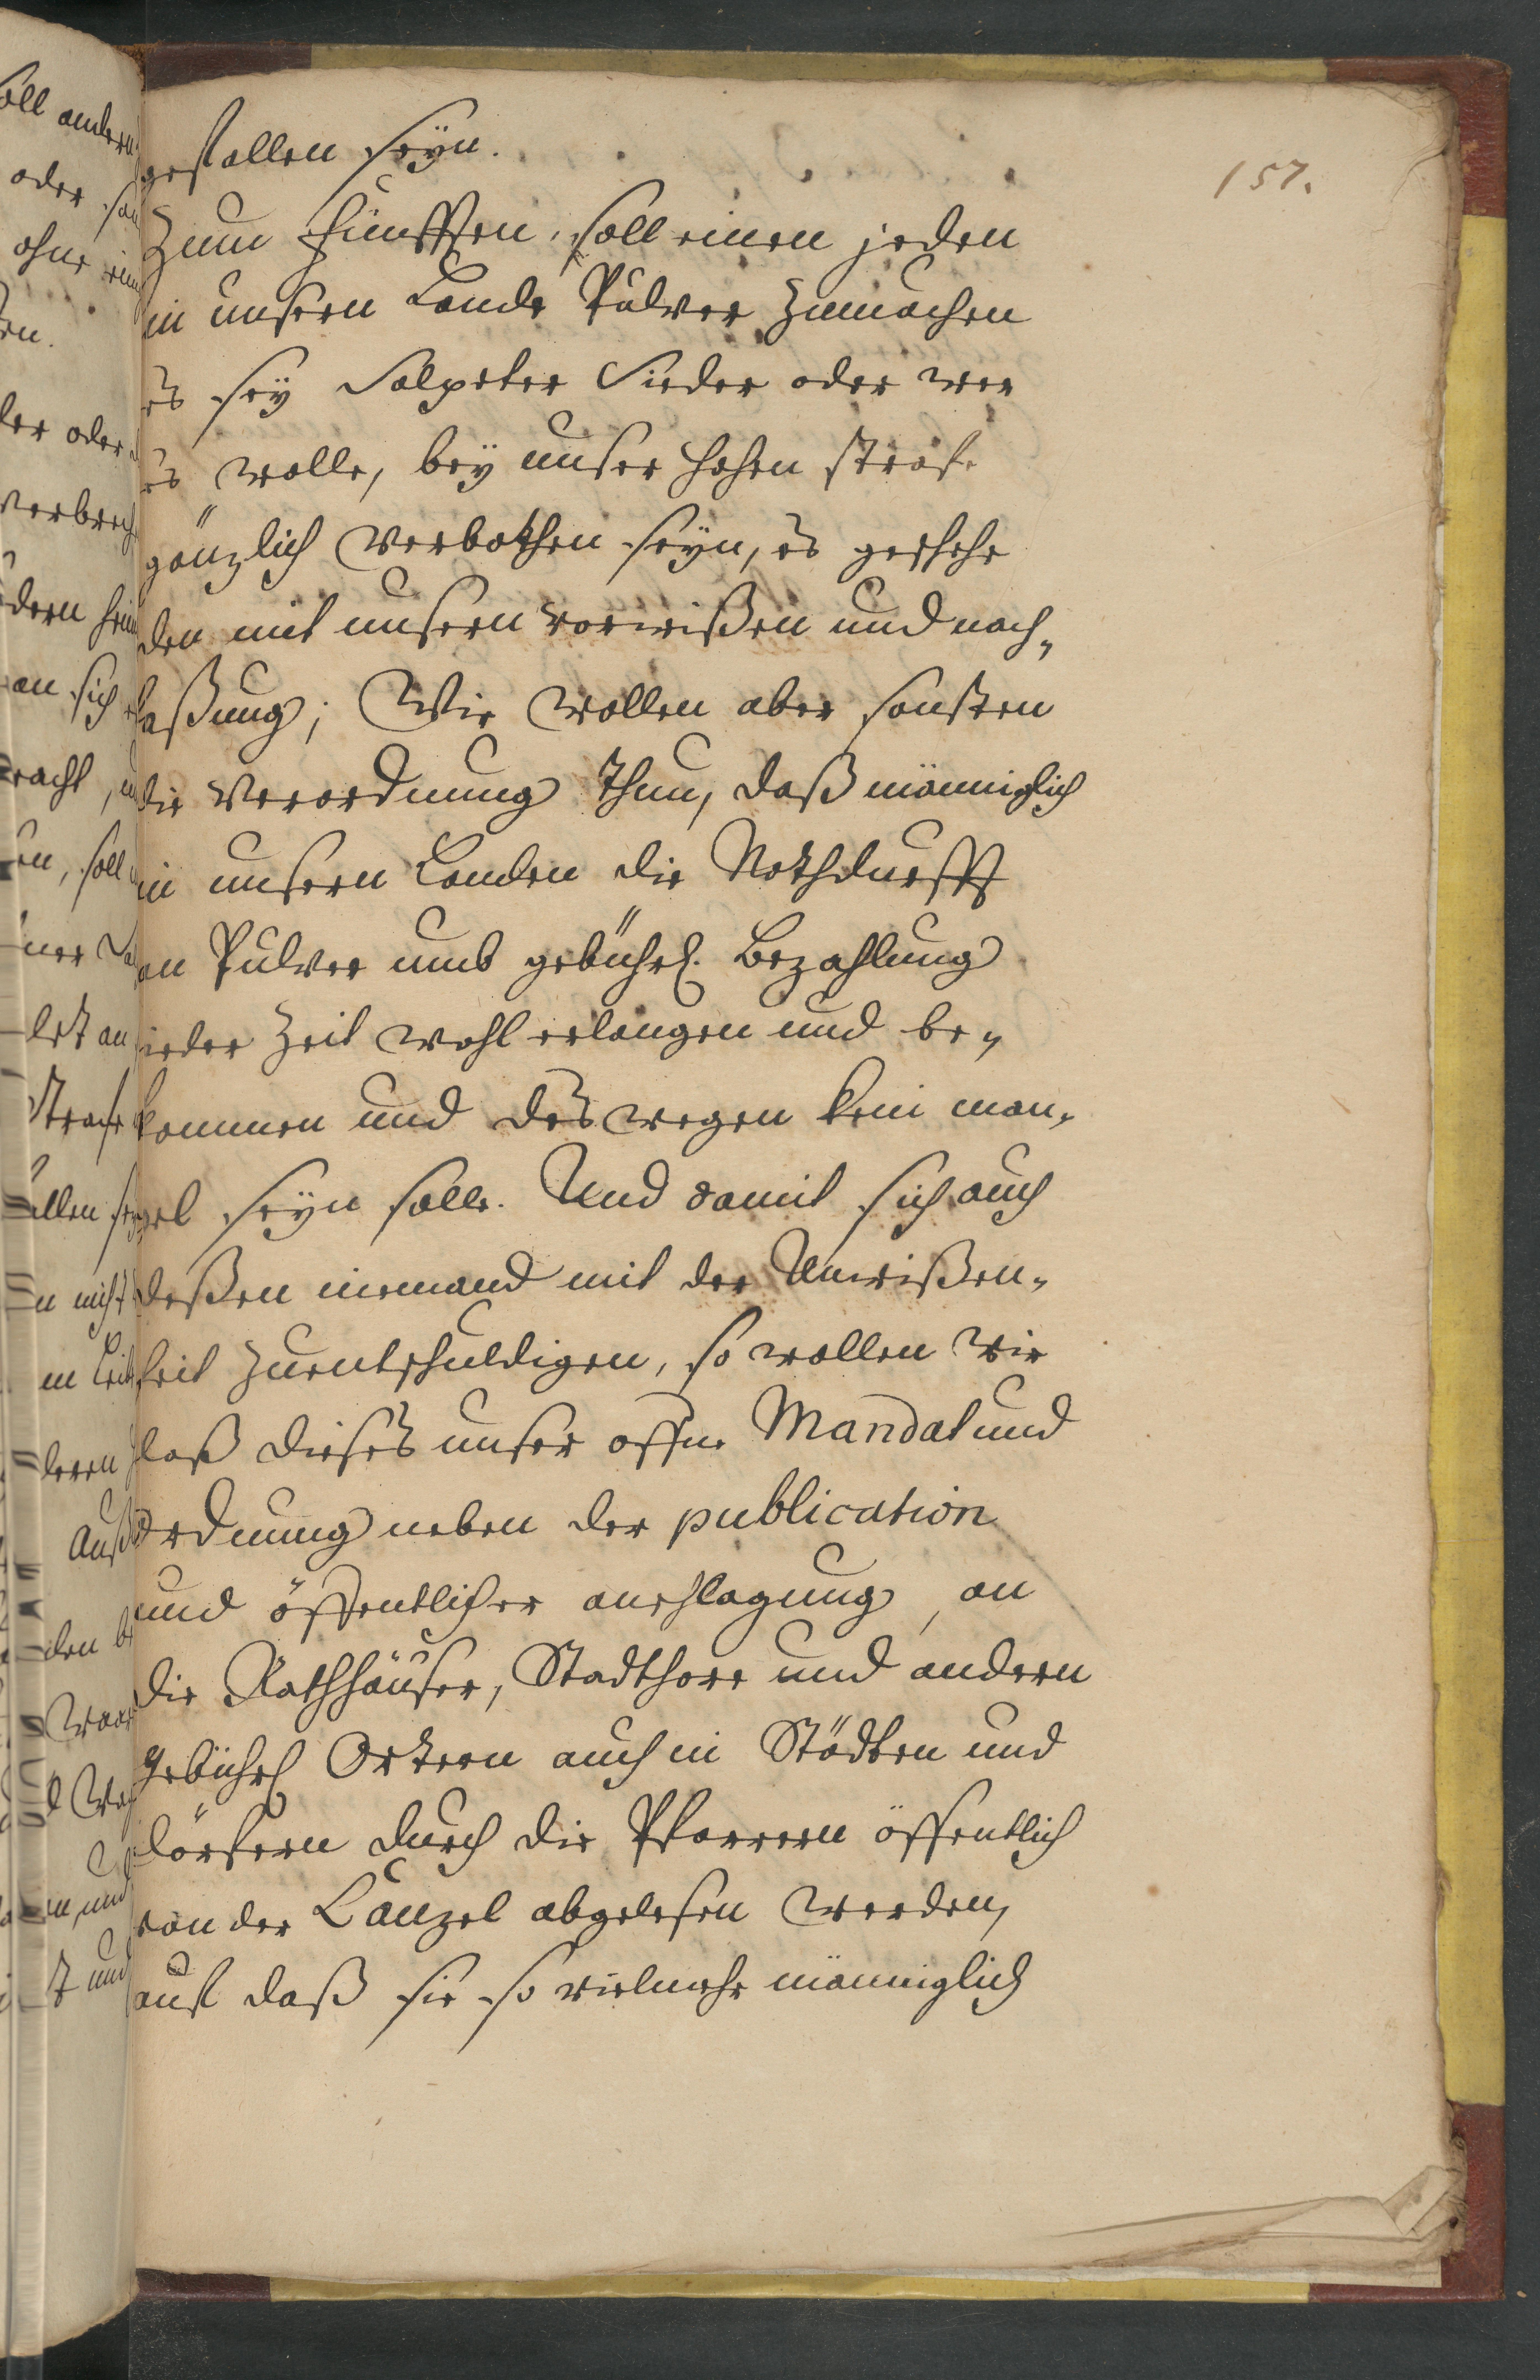 157.
gefallen seÿn.
Zum Fünfften, soll einen jeden
in unsern Lande Pulver zumachen
es seÿ Salpeter Sieder oder wer
es wolle, beÿ unser hohen strafe
gänzlich verbothen seÿn, es geschehe
den mit unsern vorwißen und nach„
laßung; Wir wollen aber sonsten
die Verordnung thun, daß männiglich
in unsern Landen die Nothdurfft
an Pulver umb gebührl. Bezahlung
ieder Zeit wohl erlangen und be„
kommen und deswegen kein man„
gel seÿn solle. Und damit sich auch
deßen niemand mit der Unwißen„
heit zuentschuldigen, so wollen Wir
daß dieses unser offne Mandat und
Ordnung neben der publication
und öffentlicher anschlagung, an
die Rathhäuser, Stadthore und andern
gebührl Ortern auch in Städten und
dörfern durch die Pfarrern öffentlich
von der Canzel abgelesen werden,
auf daß sie so vielmehr männiglich